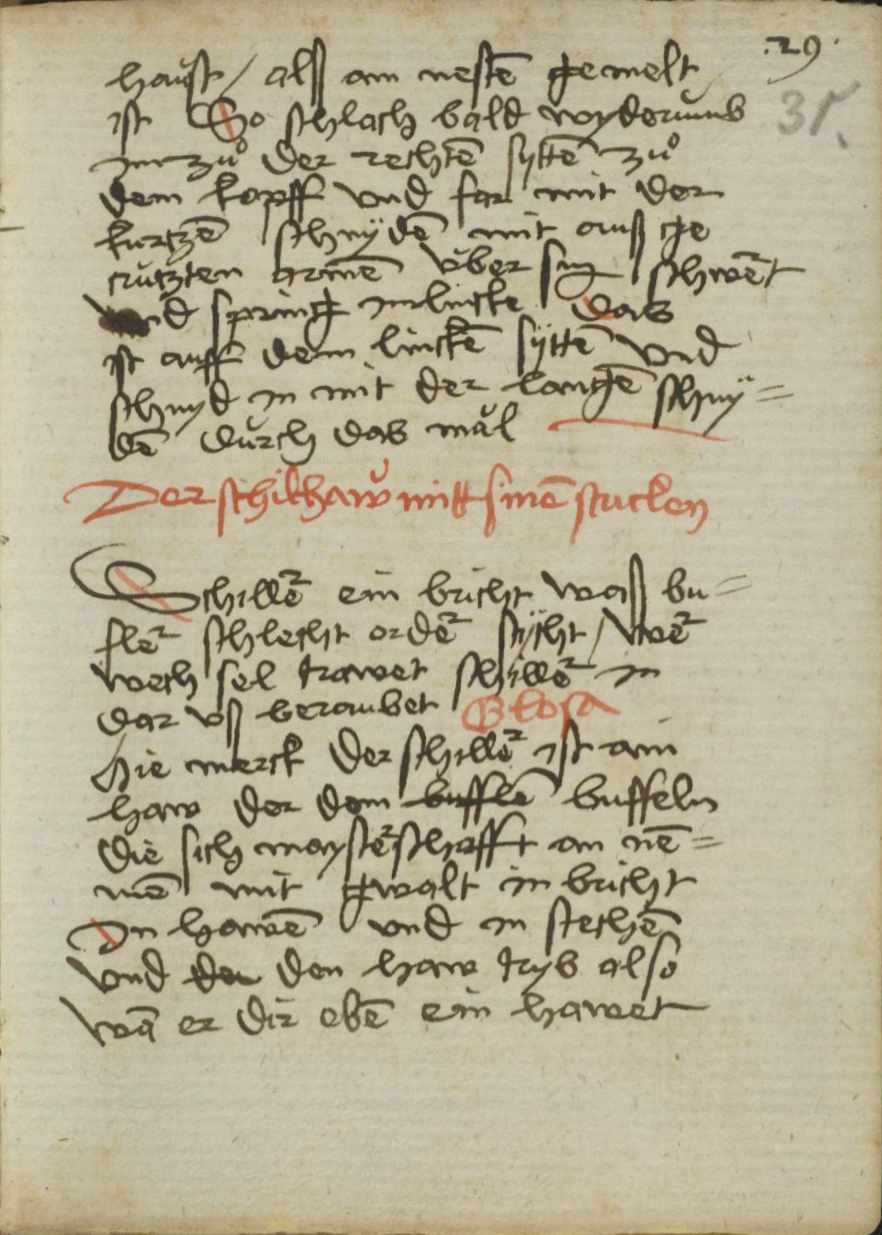 .29.
31.
haust / alß am nestē gemelt
ist So schlach bald wyderumb
im zuͦ der rechtē syttē zuͦ
dem kopff vnd far mit der
kurtzē schnÿdē mit auß ge
crützten armē v̈ber sin schwert
vnd spring im lincke das
ist auff dem linckē sÿttē vnd
schnyd in mit der langē schnÿ=
dē durch das mul
Der schilhaw mitt sinē stucken
Schillē ein bricht waß bu=
flē schlecht ordē stycht / wē
wech sel trawet schillē in
dar vß beraubet Glosa
Hie merck der schillē ist ain
haw der dem bufflē buffeln
die sich maystēschafft an nē=
mē mit gwalt in bricht
In hawē vnd in stechē
vnd den den haw tryb also
wā er dir ebē ein hawet